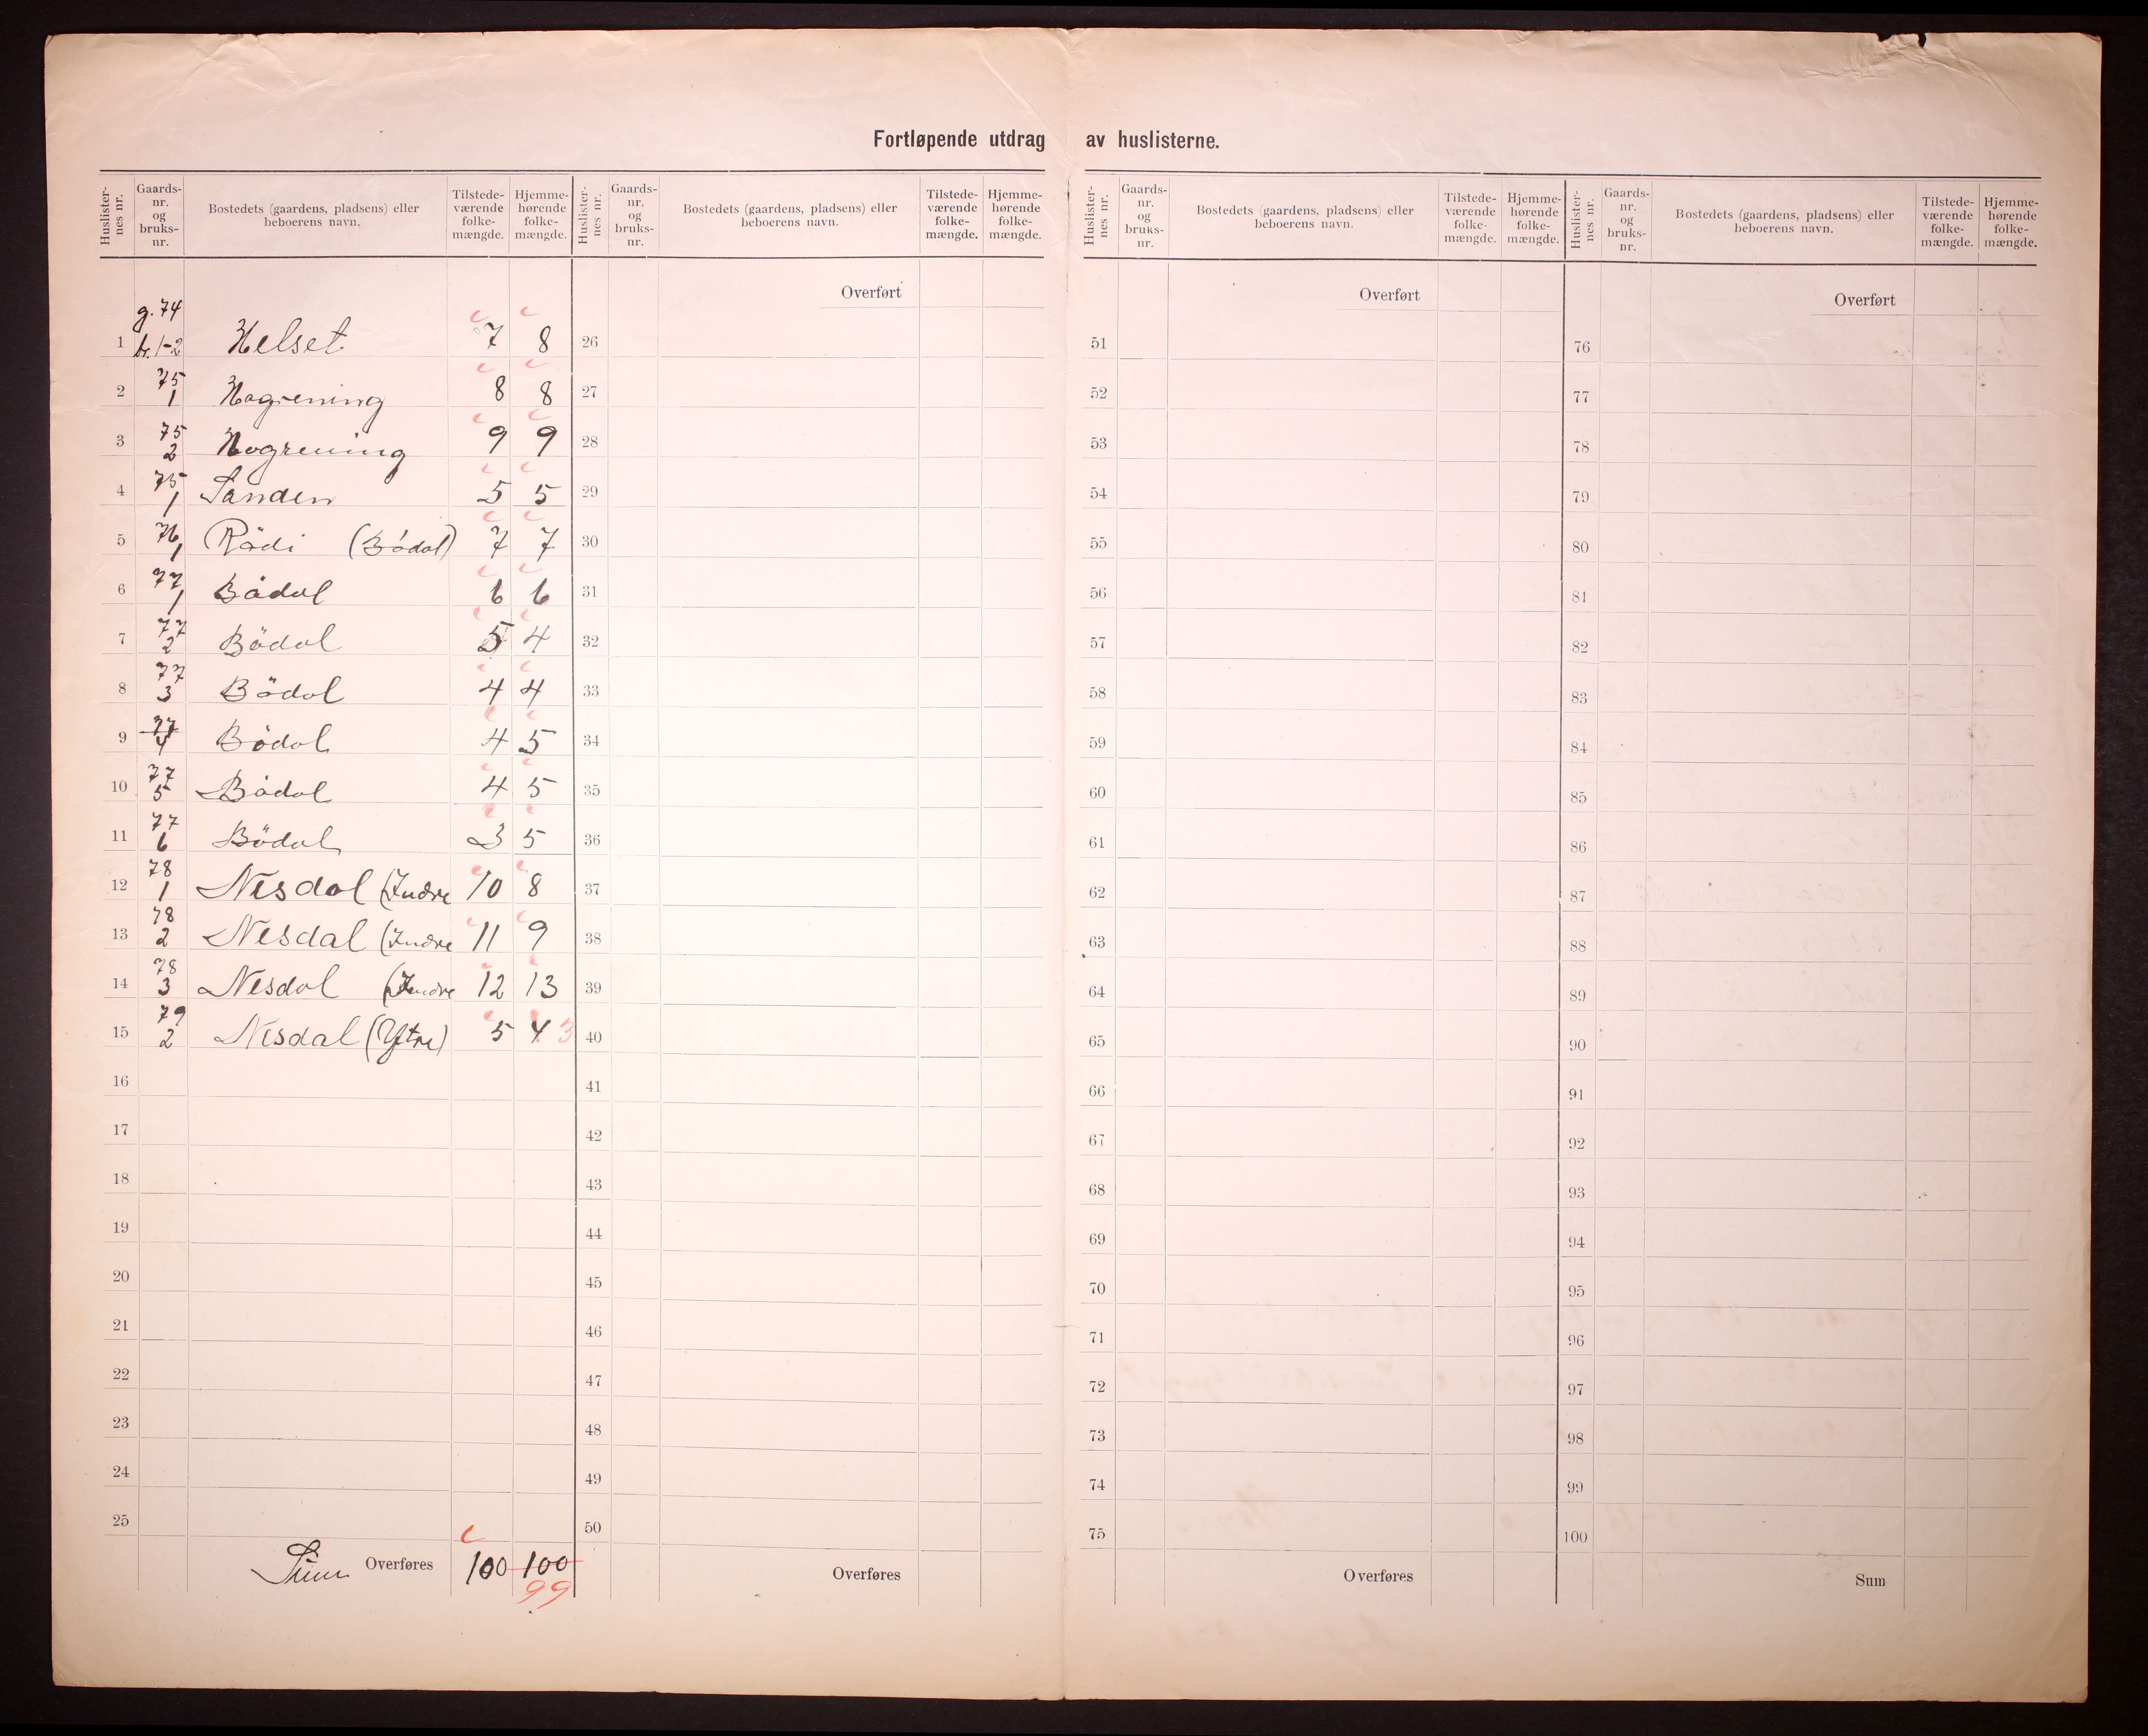 Fortløpende utdrag av huslisterne.
Huslisternes nr. Gaards-nr. og bruks-nr. Bostedets (gaardens, pladsens) eller beboerens navn. Tilstedeværende folkemængde. Hjemmehørende folkemængde.
Huslisternes nr. Gaards-nr. og bruks-nr. Bostedets (gaardens, pladsens) eller beboerens navn. Tilstedeværende folkemængde. Hjemmehørende folkemængde.
Huslisternes nr. Gaards-nr. og bruks-nr. Bostedets (gaardens, pladsens) eller beboerens navn. Tilstedeværende folkemængde. Hjemmehørende folkemængde.
Huslisternes nr. Gaards-nr. og bruks-nr. Bostedets (gaardens, pladsens) eller beboerens navn. Tilstedeværende folkemængde. Hjemmehørende folkemængde.
Overført Overført Overført
1 g. 74 br. 1-2 Helset 7 8 26 51 76
2 75 1 Hogrening 8 8 27 52 77
3 75 2 Hogrening 9 9 28 53 78
4 75 1 Sanden 5 5 29 54 79
5 76 1 Rödi (Bödal) 7 7 30 55 80
6 77 1 Bödal 6 6 31 56 81
7 77 2 Bödal 5 4 32 57 82
8 77 3 Bödal 4 4 33 58 83
9 77 4 Bödal 4 5 34 59 84
10 77 5 Bödal 4 5 35 60 85
11 77 6 Bödal 3 5 36 61 86
12 78 1 Nesdal (Indre 10 8 37 62 87
13 78 2 Nesdal (Indre 11 9 38 63 88
14 78 3 Nesdal (Indre 12 13 39 64 89
15 79 2 Nesdal (Ytre) 5 4 3 40 65 90
16 41 66 91
17 42 67 92
18 43 68 93
19 44 69 94
20 45 70 95
21 46 71 96
22 47 72 97
23 48 73 98
24 49 74 99
25 50 75 100
Sum Overføres 100 100 Overføres Overføres Sum
99